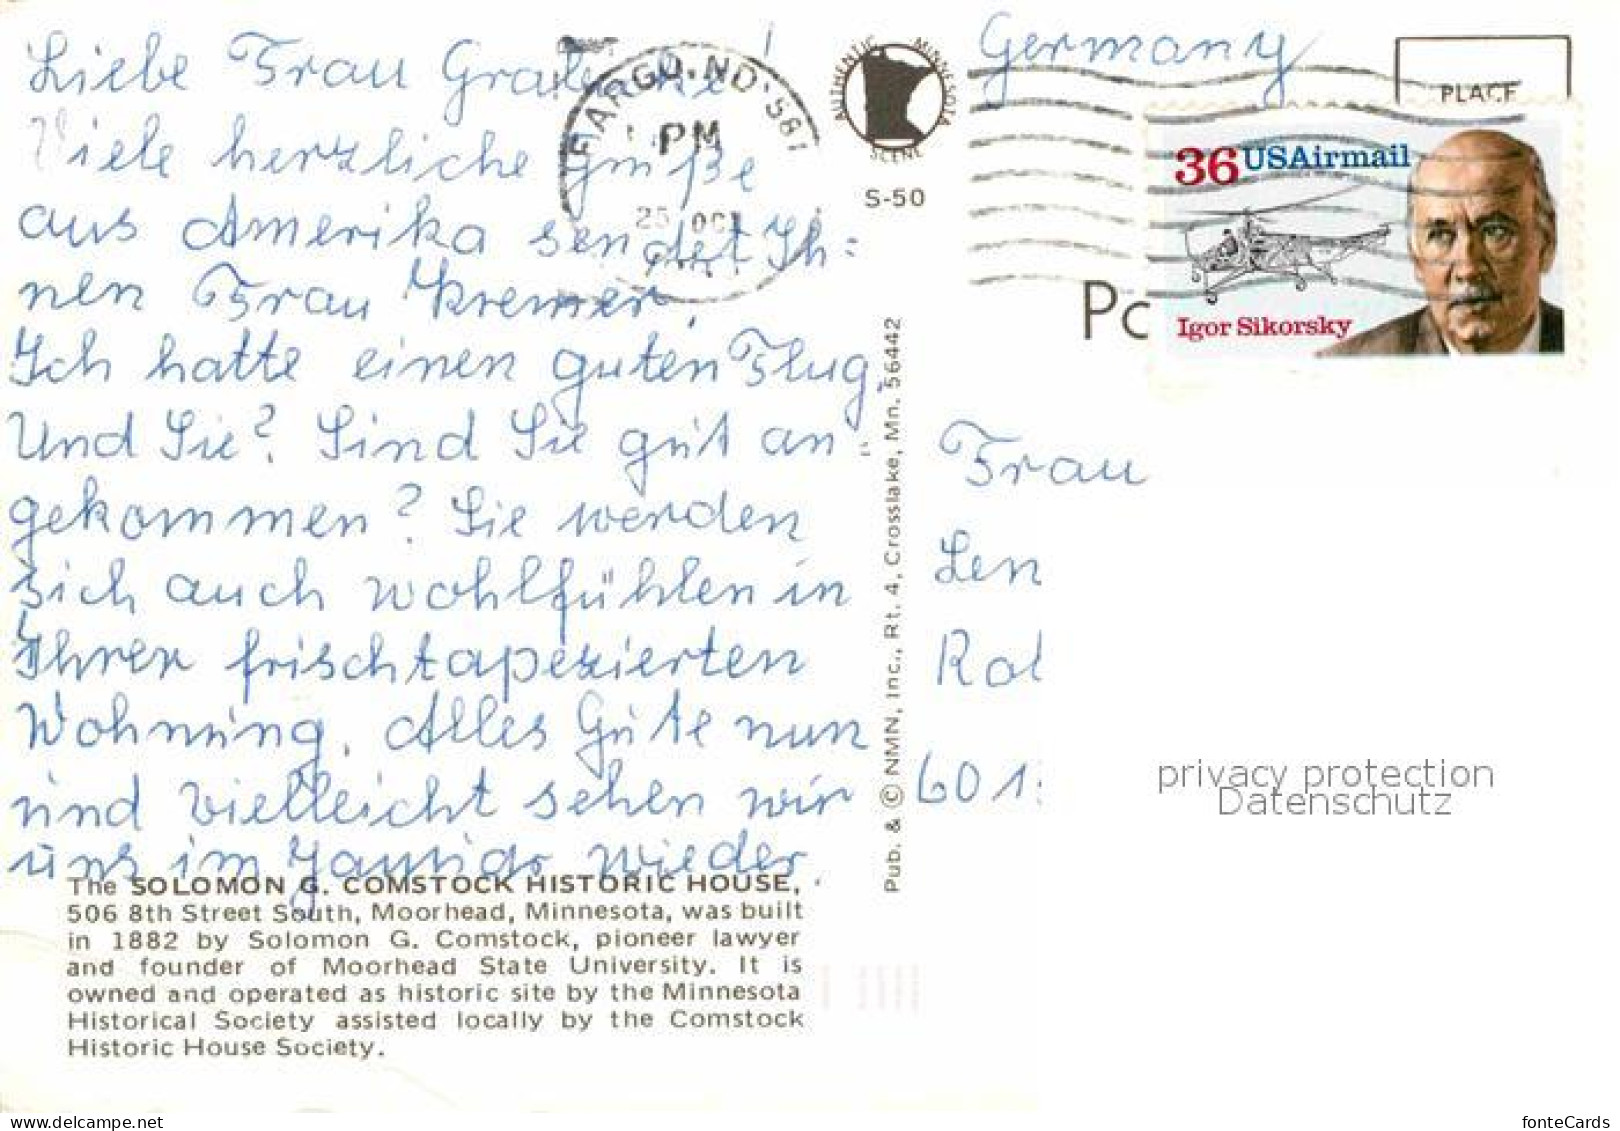 Liebe Frau
Viele herzliche Grüße
aus Amerika sendet Ih=
nen Frau Kremer.
Ich hatte einen guten Flug.
Und Sie? Sind Sie gut an
gekommen? Sie werden
sich auch wohlfühlen in
Ihrer frischtapezierten
Wohnung. Alles Gute nun
und vielleicht sehen wir
uns im wieder.
The SOLOMON G. COMSTOCK HISTORIC HOUSE,
506 8th Street South, Moorhead, Minnesota, was built
in 1882 by Solomon G. Comstock, pioneer lawyer
and founder of Moorhead State University. It is
owned and operated as historic site by the Minnesota
Historical Society assisted locally by the Comstock
Historic House Society.
FARGO, ND 581
PM
25 OCT
AUTHENTIC MINNESOTA
SCENE
S-50
Pub. & © NMN, Inc., Rt. 4, Crosslake, Mn. 56442
Germany
PLACE
36 USAirmail
Igor Sikorsky
Po
Frau
Len
Rol
601
privacy protection
Datenschutz
delcampe.net
fonteCards